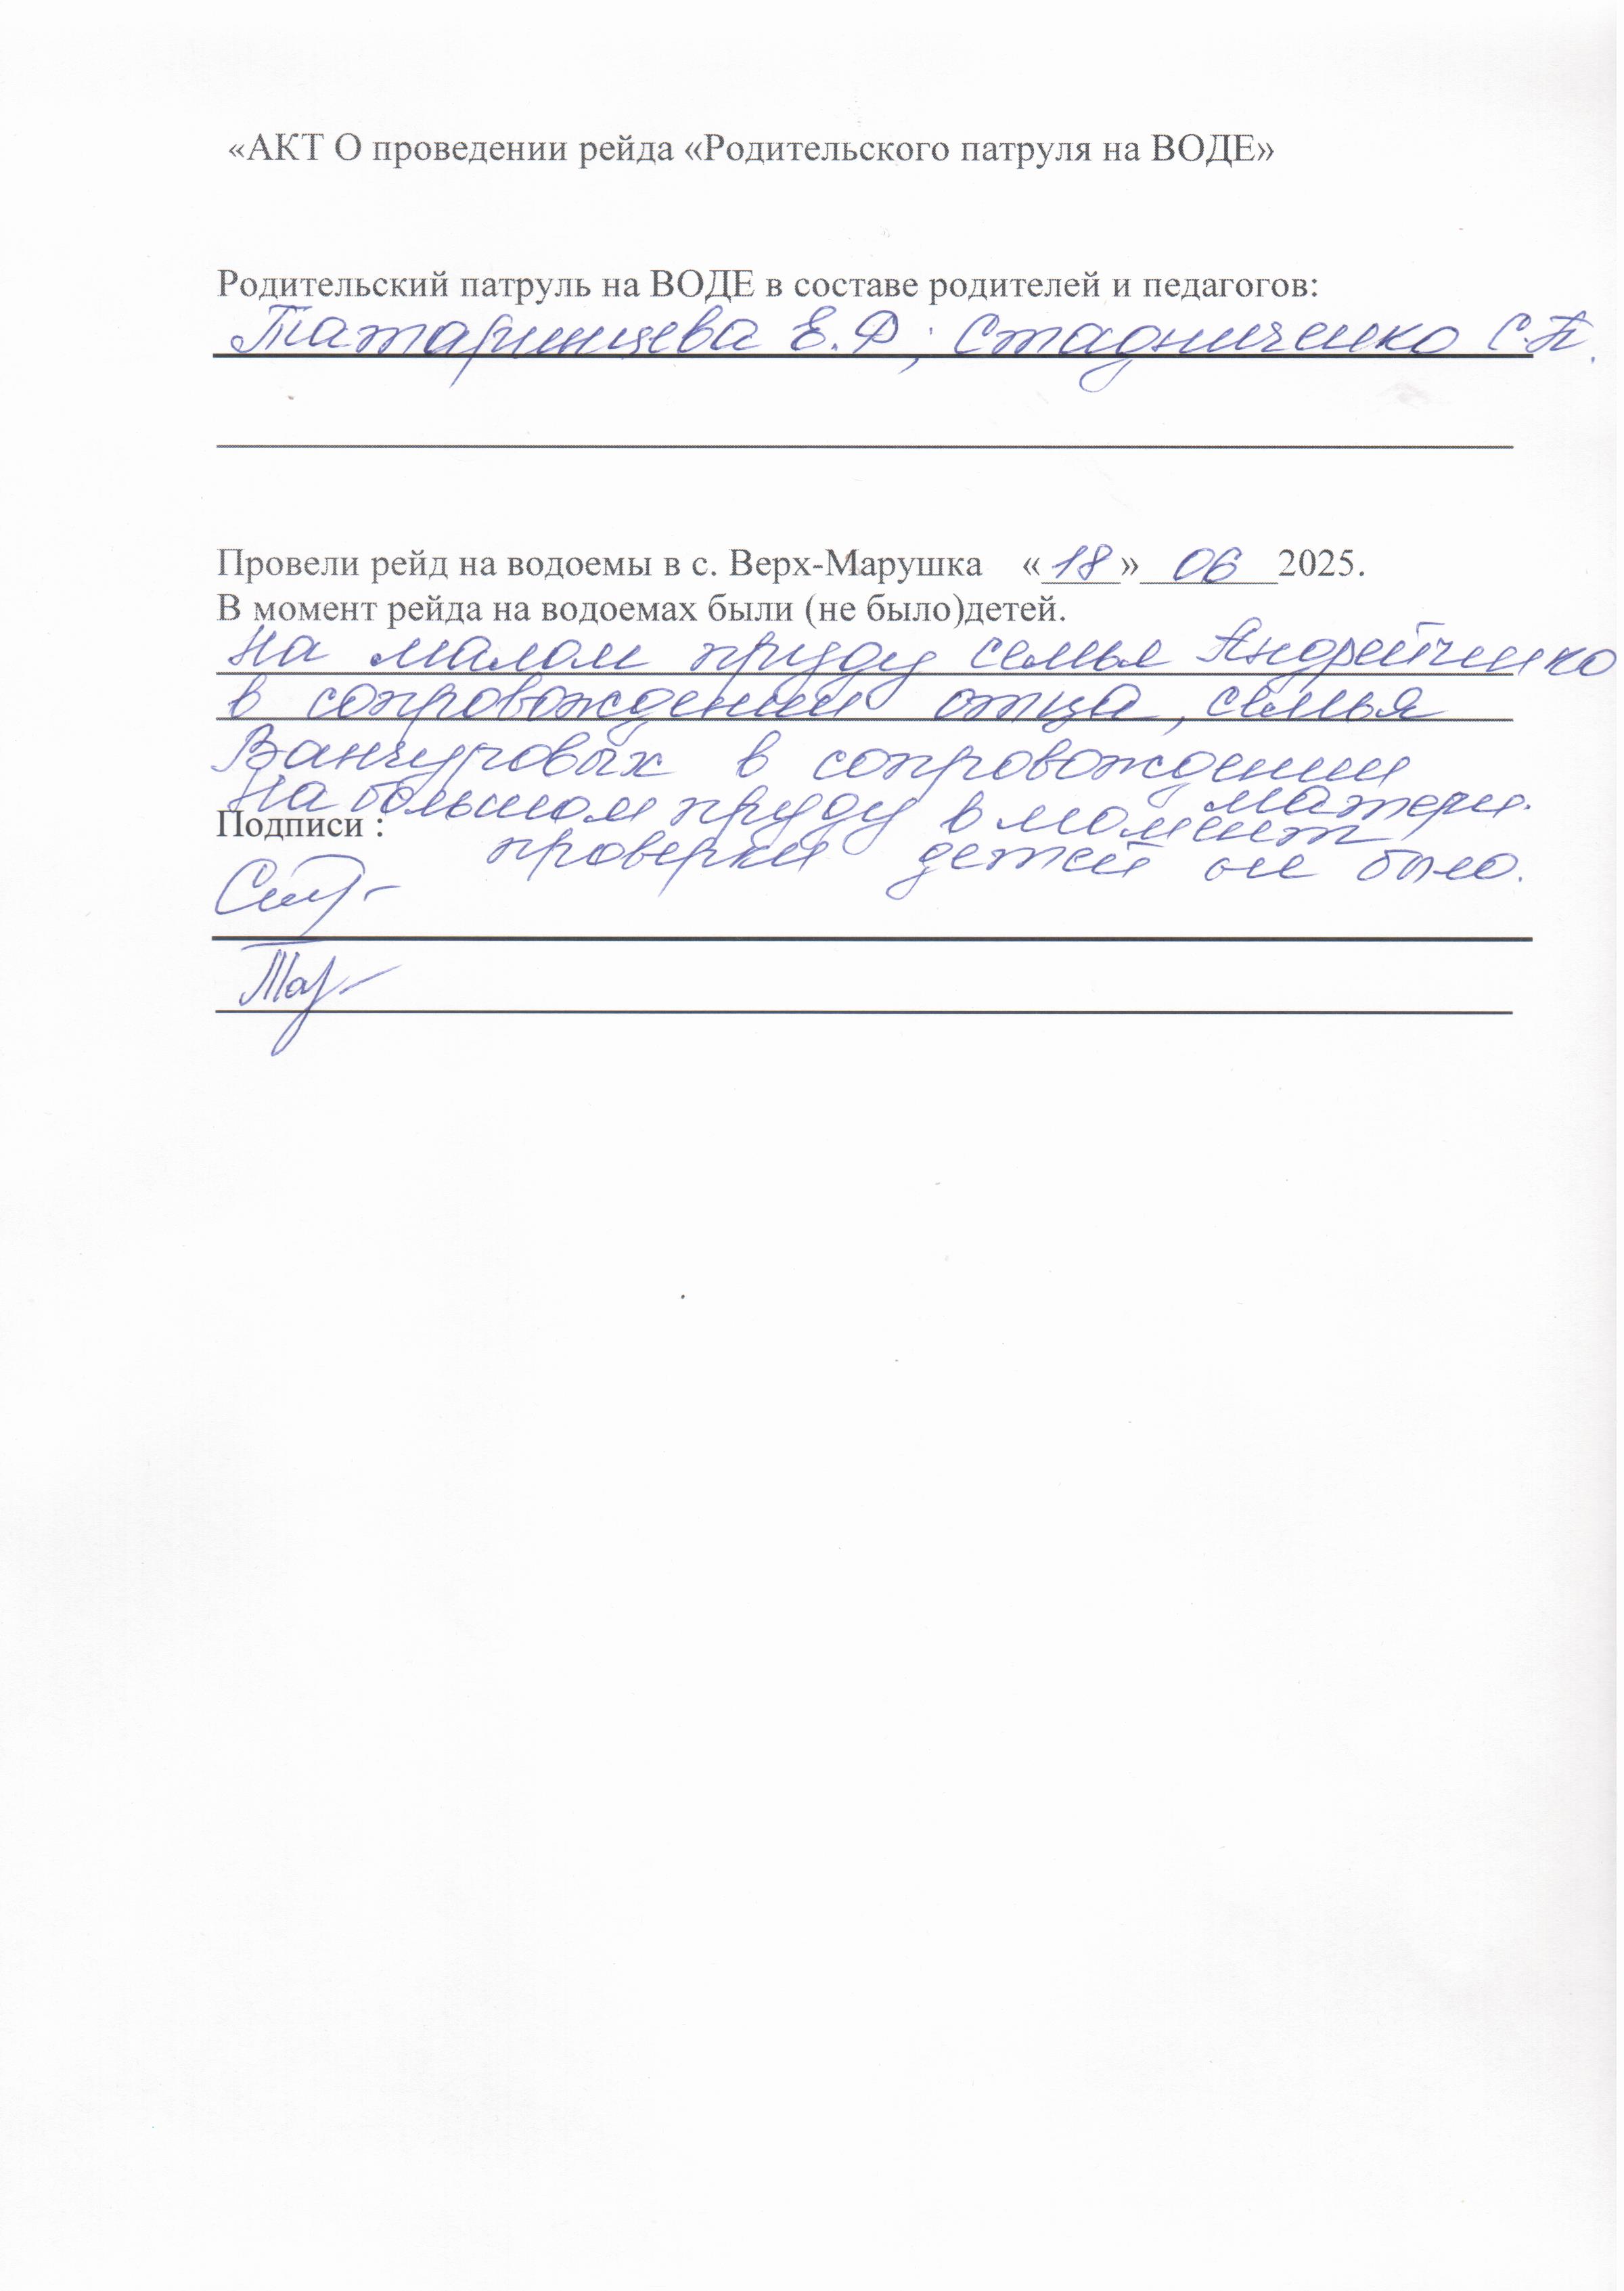 «АКТ О проведении рейда «Родительского патруля на ВОДЕ»
Родительский патруль на ВОДЕ в составе родителей и педагогов:
Татаринцева Е.Ф; Стадниченко С.П.
Провели рейд на водоемы в с. Верх-Марушка «18» 06 2025.
В момент рейда на водоемах были (не было)детей.
На малом пруду семья Андрейченко
в сопровождении отца, семья
Ванчуговых в сопровождении
матери.
На большом пруду в момент
Подписи :
проверки детей не было.